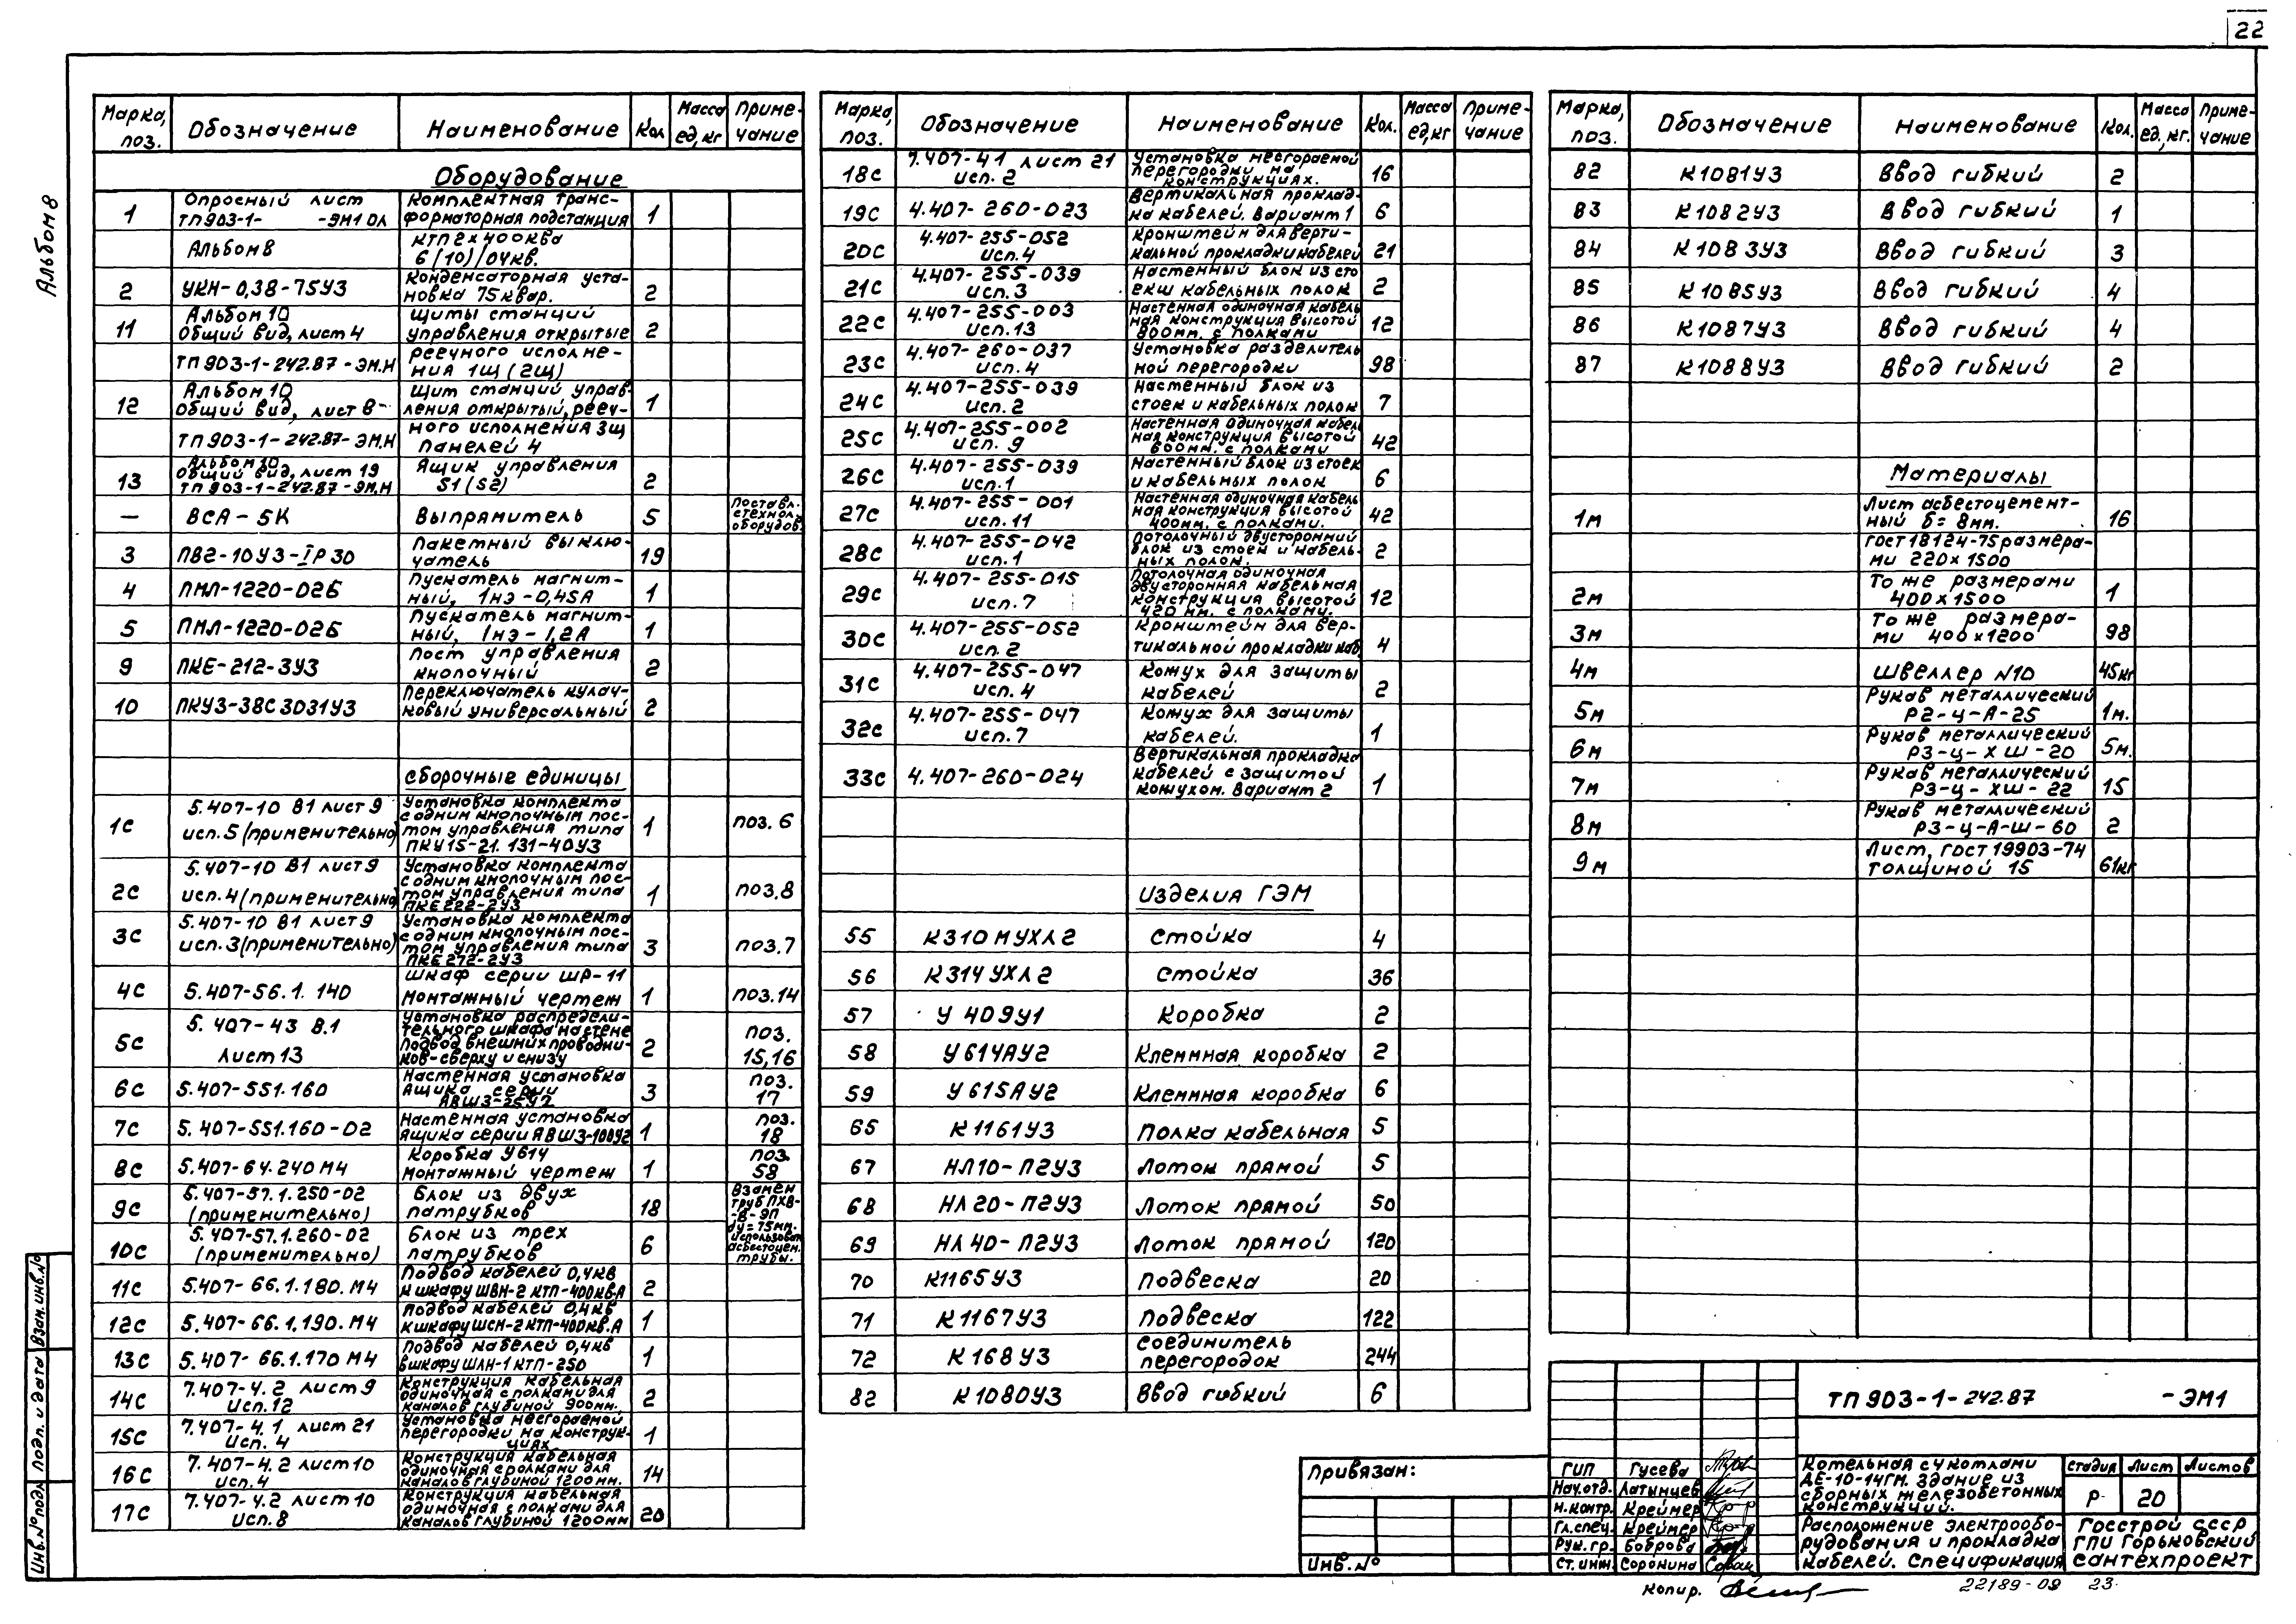 22
Альбом 8
Марка, поз. Обозначение Наименование Кол. Масса ед, кг Приме-чание
Оборудование
1 Опросный лист Комплектная транс- 1
ТП903-1- -ЭМ1 ОЛ форматорная подстанция
Альбом 8 КТП 2х400кВа
6(10)/04кв.
2 УКН-0,38-75У3 Конденсаторная уста- 2
новка 75 квар.
11 Альбом 10 Щиты станций 2
Общий вид, лист 4 управления открытые
ТП 903-1-242.87-ЭМ.И реечного исполне-
ния 1Щ (2Щ)
12 Альбом 10 Щит станций управ- 1
Общий вид, лист 8- ления открытый, рееч-
ТП 903-1-242.87-ЭМ.И ного исполнения 3Щ
Панелей 4
13 Альбом 10 Ящик управления 2
Общий вид, лист 19 S1 (S2)
ТП 903-1-242.87-ЭМ.И
— ВСА-5К Выпрямитель 5 Поставл. с технол. оборудов.
3 ПВ2-10У3-IP30 Пакетный выклю- 19
чатель
4 ПМЛ-1220-02Б Пускатель магнит- 1
ный, 1нэ-0,45А
5 ПМЛ-1220-02Б Пускатель магнит- 1
ный, 1нэ-1,2А
9 ПКЕ-212-3У3 Пост управления 2
кнопочный
10 ПКУ3-38С3031У3 Переключатель кулач- 2
ковый универсальный
Сборочные единицы
1С 5.407-10 В1 лист 9 Установка комплекта 1 поз. 6
исп. 5 (применительно) с одним кнопочным пос-
том управления типа
ПКУ15-21.131-40У3
2С 5.407-10 В1 лист 9 Установка комплекта 1 поз. 8
исп. 4 (применительно) с одним кнопочным пос-
том управления типа
ПКЕ 222-2У3
3С 5.407-10 В1 лист 9 Установка комплекта 3 поз. 7
исп. 3 (применительно) с одним кнопочным пос-
том управления типа
ПКЕ 272-2У3
4С 5.407-56.1.140 Шкаф серии ШР-11 1 поз. 14
Монтажный чертеж
5С 5.407-43 В.1 Установка распредели- 2 поз.
Лист 13 тельного шкафа на стене 15,16
Подвод внешних проводни-
ков-сверху и снизу
6С 5.407-551.160 Настенная установка 3 поз. 17
Ящика серии
АВШ3-25У2
7С 5.407-551.160-02 Настенная установка 1 поз. 18
Ящика серии АВШ3-100У2
8С 5.407-64.240 М4 Коробка У614 1 поз. 58
Монтажный чертеж
9С 5.407-57.1.250-02 Блок из двух 18 Взамен труб ПХВ-
(применительно) патрубков -В-ЭП
10С 5.407-57.1.260-02 Блок из трех 6 dу=75мм. использован.
(применительно) патрубков асбестоцем. трубы.
11С 5.407-66.1.180.М4 Подвод кабелей 0,4кв 2
к шкафу ШВН-2 КТП-400кв.А
12С 5.407-66.1.190.М4 Подвод кабелей 0,4кв 1
К шкафу ШСН-2 КТП-400кв.А
13С 5.407-66.1.170 М4 Подвод кабелей 0,4кв 1
в шкафу ШЛН-1 КТП-250
14С 7.407-4.2 лист 9 Конструкция кабельная 2
Исп. 12 одиночная с полками для
каналов глубиной 900мм.
15С 7.407-4.1 лист 21 Установка несгораемой 1
Исп. 4 перегородки на конструк-
циях
16С 7.407-4.2 лист 10 Конструкция кабельная 14
исп. 4 одиночная с полками для
каналов глубиной 1200мм.
17С 7.407-4.2 лист 10 Конструкция кабельная 20
исп. 8 одиночная с полками для
каналов глубиной 1200мм
Марка, поз. Обозначение Наименование Кол. Масса ед, кг Приме-чание
18С 7.407-4.1 лист 21 Установка несгораемой 16
исп. 2 перегородки на
конструкциях.
19С 4.407-260-023 Вертикальная проклад- 6
ка кабелей. Вариант 1
20С 4.407-255-052 Кронштейн для верти- 21
исп. 4 кальной прокладки кабелей
21С 4.407-255-039 Настенный блок из сто 2
исп. 3 екш кабельных полок
22С 4.407-255-003 Настенная одиночная кабель 12
исп. 13 ная конструкция высотой
800мм. с полками
23С 4.407-260-037 Установка разделитель 98
исп. 4 ной перегородки
24С 4.407-255-039 Настенный блок из 7
исп. 2 стоек и кабельных полок
25С 4.407-255-002 Настенная одиночная кабель 42
исп. 9 ная конструкция высотой
600мм. с полками
26С 4.407-255-039 Настенный блок из стоек 6
исп. 1 и кабельных полок
27С 4.407-255-001 Настенная одиночная кабель 42
исп. 11 ная конструкция высотой
400мм. с полками.
28С 4.407-255-042 Потолочный двусторонний 2
исп. 1 блок из стоек и кабель-
ных полок.
29С 4.407-255-015 Потолочная одиночная 12
исп. 7 двусторонняя кабельная
конструкция высотой
420 мм. с полками.
30С 4.407-255-052 Кронштейн для вер- 4
исп. 2 тикальной прокладки каб
31С 4.407-255-047 Кожух для защиты 2
исп. 4 кабелей
32С 4.407-255-047 Кожух для защиты 1
исп. 7 кабелей.
33С 4.407-260-024 Вертикальная прокладка 1
кабелей с защитой
кожухом. Вариант 2
Изделия ГЭМ
55 К310МУХЛ2 Стойка 4
56 К314УХЛ2 Стойка 36
57 У409У1 Коробка 2
58 У614АУ2 Клеммная коробка 2
59 У615АУ2 Клеммная коробка 6
65 К1161У3 Полка кабельная 5
67 НЛ10-П2У3 Лоток прямой 5
68 НЛ20-П2У3 Лоток прямой 50
69 НЛ40-П2У3 Лоток прямой 120
70 К1165У3 Подвеска 20
71 К1167У3 Подвеска 122
72 К168У3 Соединитель 244
перегородок
82 К1080У3 Ввод гибкий 6
Марка, поз. Обозначение Наименование Кол. Масса ед, кг. Приме-чание
82 К1081У3 Ввод гибкий 2
83 К1082У3 Ввод гибкий 1
84 К1083У3 Ввод гибкий 3
85 К1085У3 Ввод гибкий 4
86 К1087У3 Ввод гибкий 4
87 К1088У3 Ввод гибкий 2
Материалы
1м Лист асбестоцемент- 16
ный б=8мм.
ГОСТ 18124-75 размера-
ми 220х1500
2м То же размерами 1
400х1500
3м То же размера- 98
ми 400х1200
4м Швеллер N10 45кг
5м Рукав металлический 1м.
Р2-Ц-А-25
6м Рукав металлический 5м.
Р3-Ц-ХШ-20
7м Рукав металлический 15
Р3-Ц-ХШ-22
8м Рукав металлический 2
Р3-Ц-А-Ш-60
9м Лист, ГОСТ 19903-74 61кг
толщиной 15
ТП 903-1-242.87 -ЭМ1
Привязан:
Инв. №
ГИП Гусева
Нач.отд. Латынцев
Н.контр. Креймер
Гл.спец. Креймер
Рук.гр. Боброва
Ст.инж. Сорокина
Котельная с 4 котлами
ДЕ-10-14ГМ. Здание из
сборных железобетонных
конструкций.
Стадия Лист Листов
Р 20
Расположение электрообо-
рудования и прокладка
кабелей. Спецификация
Госстрой СССР
ГПИ Горьковский
Сантехпроект
Копир.
22189-08 23
Инв.№ подл. Подп. и дата Взам.инв.№